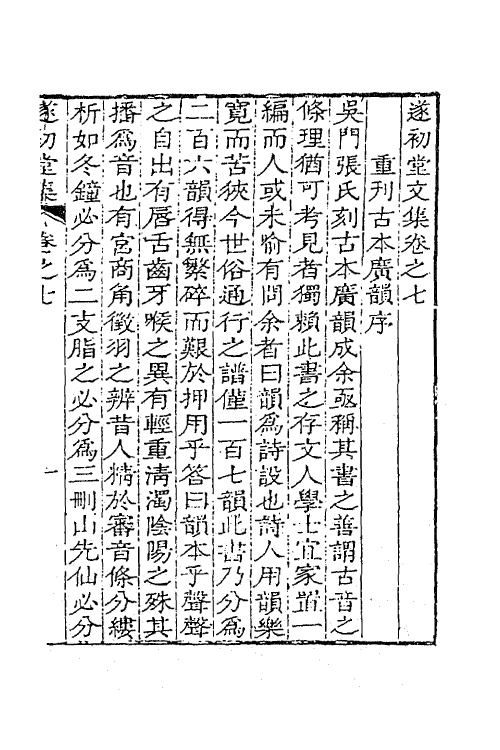 遂初堂文集卷之七
重刊古本廣韻序
吳門張氏刻古本廣韻成余亟稱其書之善謂古音之
條理猶可考見者獨賴此書之存文人學士宜家置一
編而人或未喻有問余者曰韻為詩設也詩人用韻樂
寛而苦狹今世俗通行之譜僅一百七韻此書乃分為
二百六韻得無繁碎而艱於押用乎答曰韻本乎聲聲
之自出有唇舌齒牙喉之異有輕重清濁陰陽之殊其
播為音也有宮商角徵羽之辨昔人精於審音條分縷
析如冬鐘必分為二支脂之必分為三刪山先仙必分
遂初堂集 卷之七 一